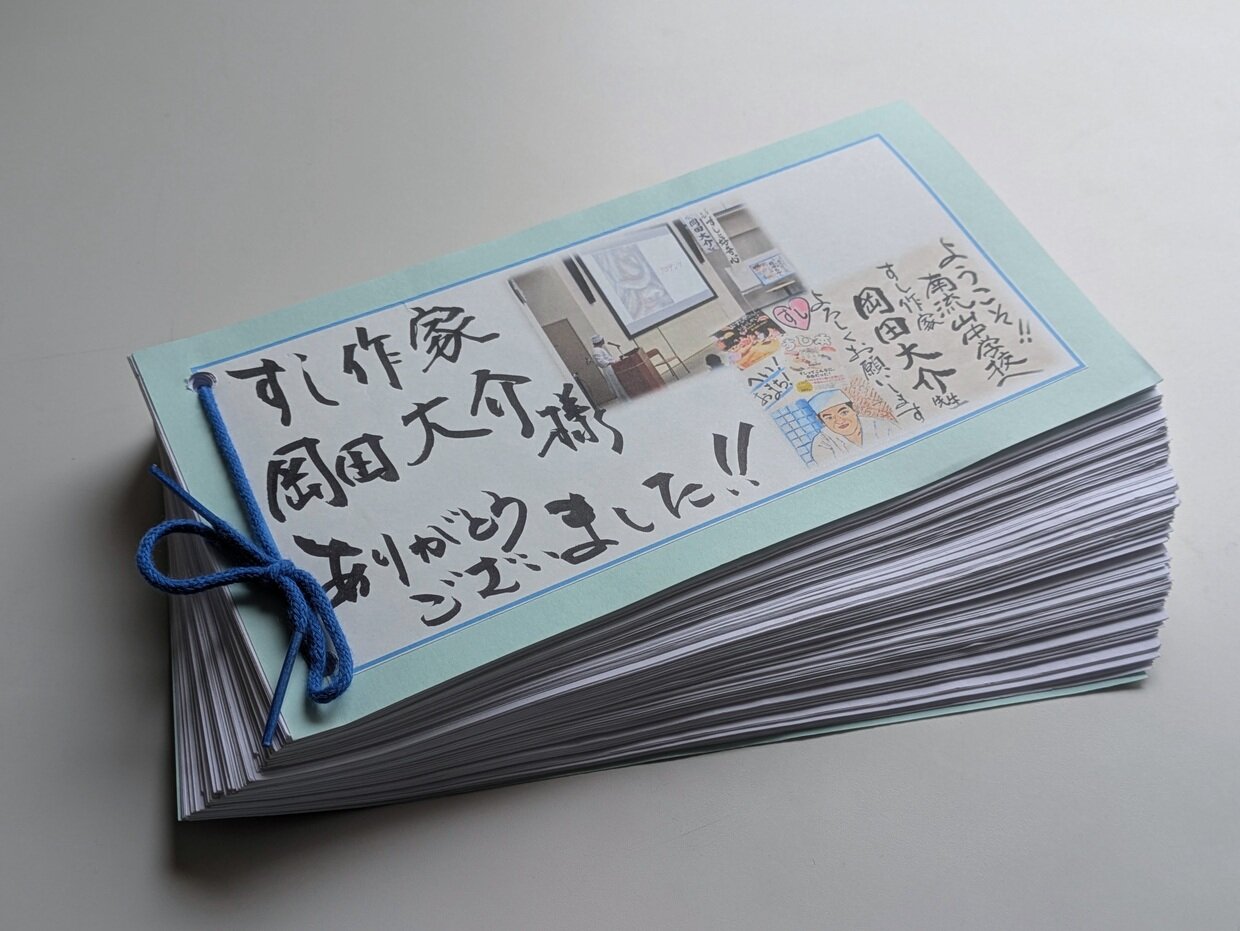 すし作家
岡田大介様
ありがとう
ございました!!
ようこそ!!
南流山中学校へ
すし作家
岡田大介先生
よろしくお願いします
すし
へい!
おまち!
岡田大介